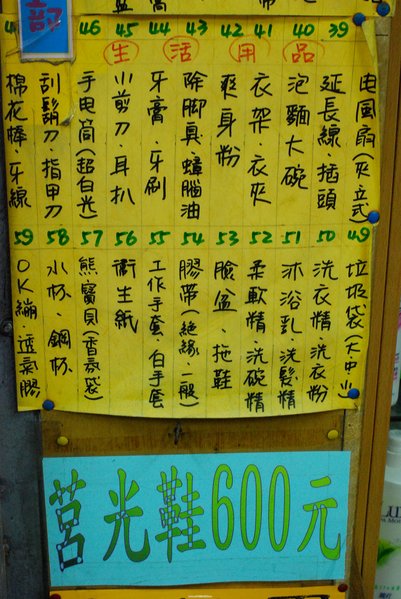 生活用品
39 電風扇(夾、立式)
40 延長線、插頭
41 泡麵大碗
42 衣架、衣夾
43 爽身粉
44 除腳臭、蟑腦油
45 牙膏、牙刷
46 小剪刀、耳扒
手电筒(超白光)
刮鬍刀、指甲刀
棉花棒、牙線
49 垃圾袋(大中小)
50 洗衣精、洗衣粉
51 沐浴乳、洗髮精
52 柔軟精、洗碗精
53 臉盆、拖鞋
54 膠帶(絶緣、一般)
55 工作手套、白手套
56 衛生紙
57 熊寶貝(香氛袋)
58 水杯、鋼杯
59 OK繃、透氣膠
莒光鞋600元